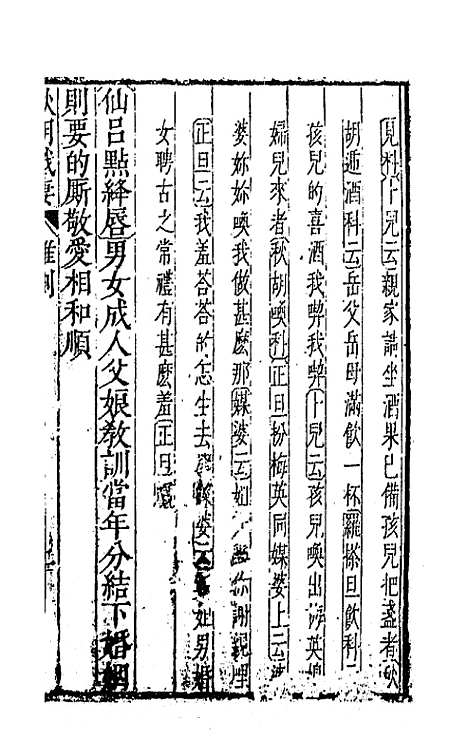 見科卜兒云親家請坐酒果已備孩兒把盞者秋
胡遞酒科云岳父岳母滿飲一杯羅搽旦飲科云
孩兒的喜酒我喫我喫卜兒云孩兒喚出梅英媳
婦兒來者秋胡喚科正旦扮梅英同媒婆上云
婆妳妳喚我做甚麽那媒婆云姐你謝親哩
正旦云我羞答答的怎生去媒婆云姐男婚
女聘古之常禮有甚麽羞正旦唱
仙呂點絳唇男女成人父娘教訓當年分結下婚姻
則要的厮敬愛相和順
秋胡戲妻 雜劇